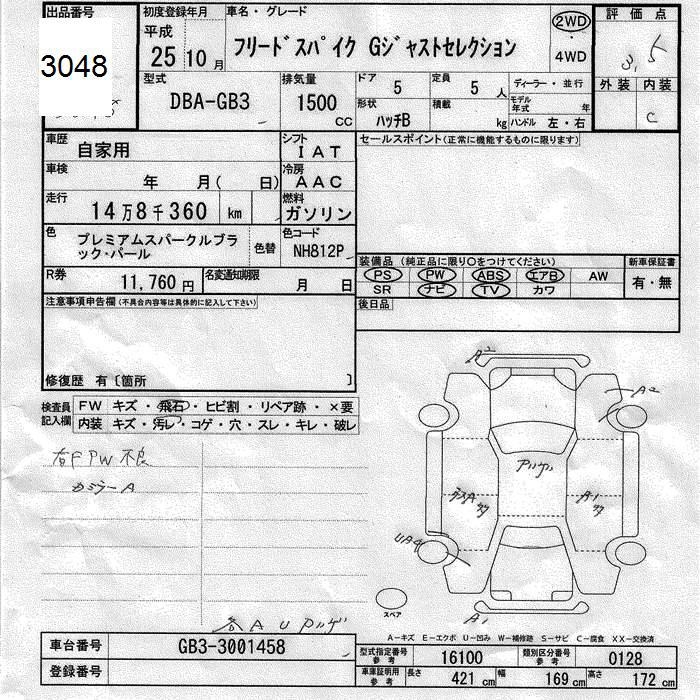 出品番号
3048
初度登録年月
平成
25 10 月
車名・グレード
フリードスパイク Gジャストセレクション
2WD
・
4WD
評価点
3.5
外装 内装
C
型式
DBA-GB3
排気量
1500
CC
ドア
5
定員
5 人
ディーラー・並行
形状
ハッチB
積載
kg
モデル年式 年
ハンドル 左・右
車歴
自家用
シフト
IAT
セールスポイント(正常に機能するものに限ります)
車検
年 月( 日)
冷房
AAC
走行
14万8千360 km
燃料
ガソリン
色
プレミアムスパークルブラ
ック・パール
色替
色コード
NH812P
装備品 (純正品に限り○をつけてください)
PS PW ABS エアB AW
SR ナビ TV カワ
新車保証書
有・無
R券
11,760 円
名変通知期限
月 日
後日品
注意事項申告欄(不具合内容等は具体的に記入して下さい)
修復歴 有〔箇所 〕
検査員
記入欄
FW キズ・飛石・ヒビ割・リペア跡・×要
内装 キズ・汚レ・コゲ・穴・スレ・キレ・破レ
右FPW不良
カミラーA
各AUアリゲ
A2
A2
A1
UA4
A1
スペア
A-キズ E-エクボ U-凹み W-補修跡 S-サビ C-腐食 XX-交換済
車台番号
GB3-3001458
登録番号
型式指定番号
参考
16100
類別区分番号
参考
0128
車庫証明用
参考
長さ
421 cm
幅
169 cm
高さ
172 cm